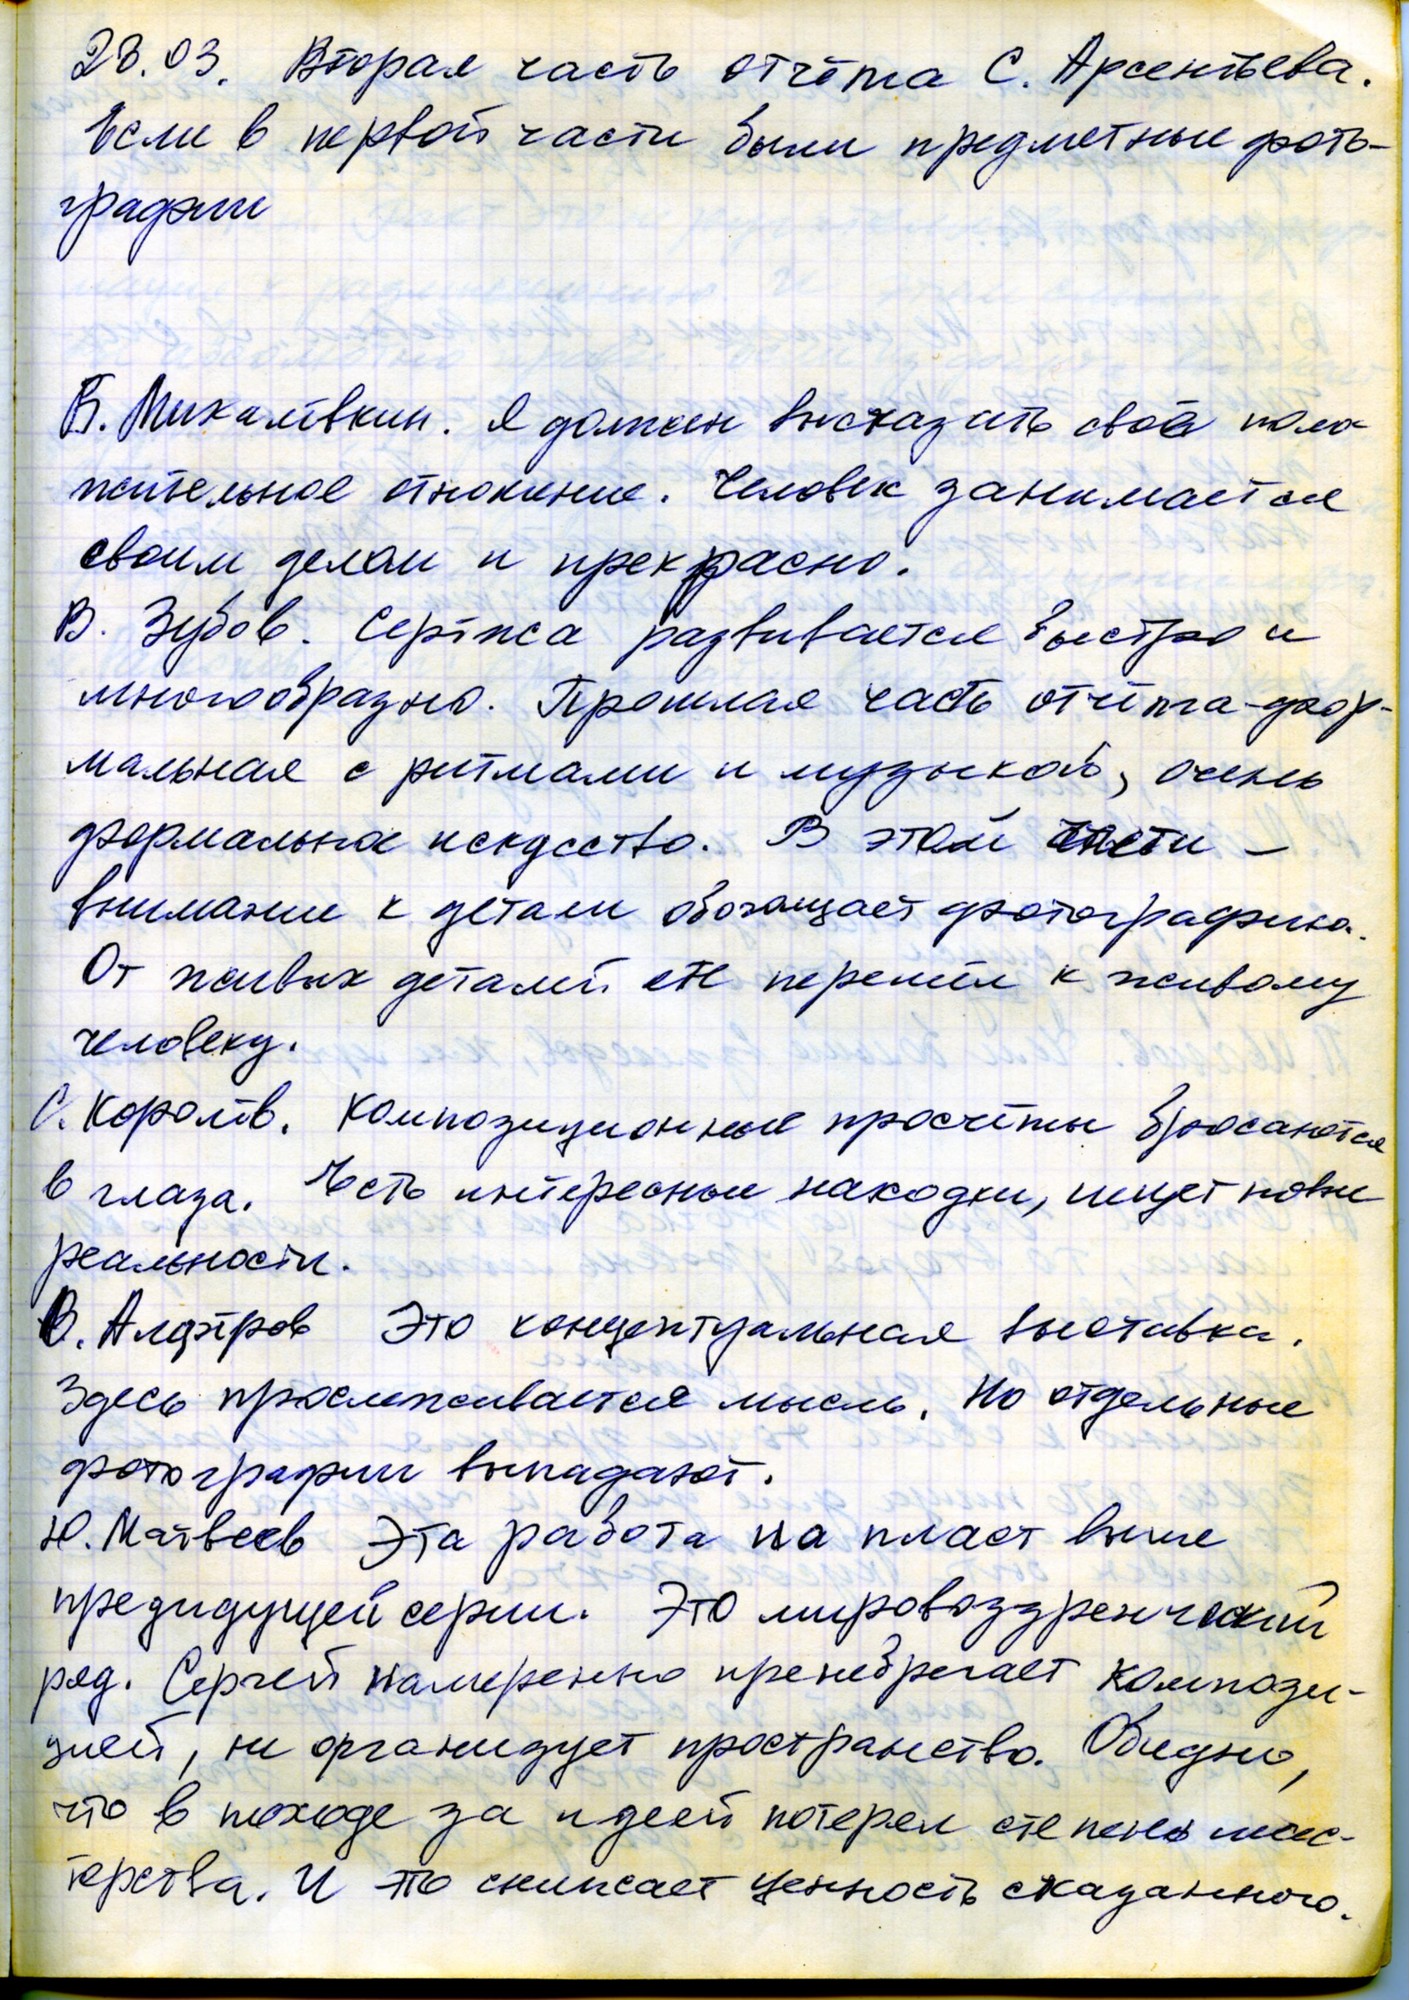 28.03. Вторая часть отчёта С. Арсентьева.
Если в первой части были предметные фото-
графии
Б. Михалёвкин. Я должен высказать своё поло-
жительное отношение. Человек занимается
своим делом и прекрасно.
В. Зубов. Серёжа развивается быстро и
многообразно. Прошлая часть отчёта - фор-
мальная с ритмами и музыкой, очень
формальное искусство. В этой части –
внимание к детали обогащает фотографию.
От живых деталей он перешёл к живому
человеку.
С. Королёв. Композиционные просчёты бросаются
в глаза. Есть интересные находки, ищет новые
реальности.
О. Алфёров Это концептуальная выставка.
Здесь прослеживается мысль. Но отдельные
фотографии выпадают.
Ю. Матвеев Эта работа на пласт выше
предидущей серии. Это мировоззренческий
ряд. Сергей намеренно пренебрегает компози-
цией, не организует пространство. Обидно,
что в походе за идеей потерял степень мас-
терства. И это снижает ценность сказанного.